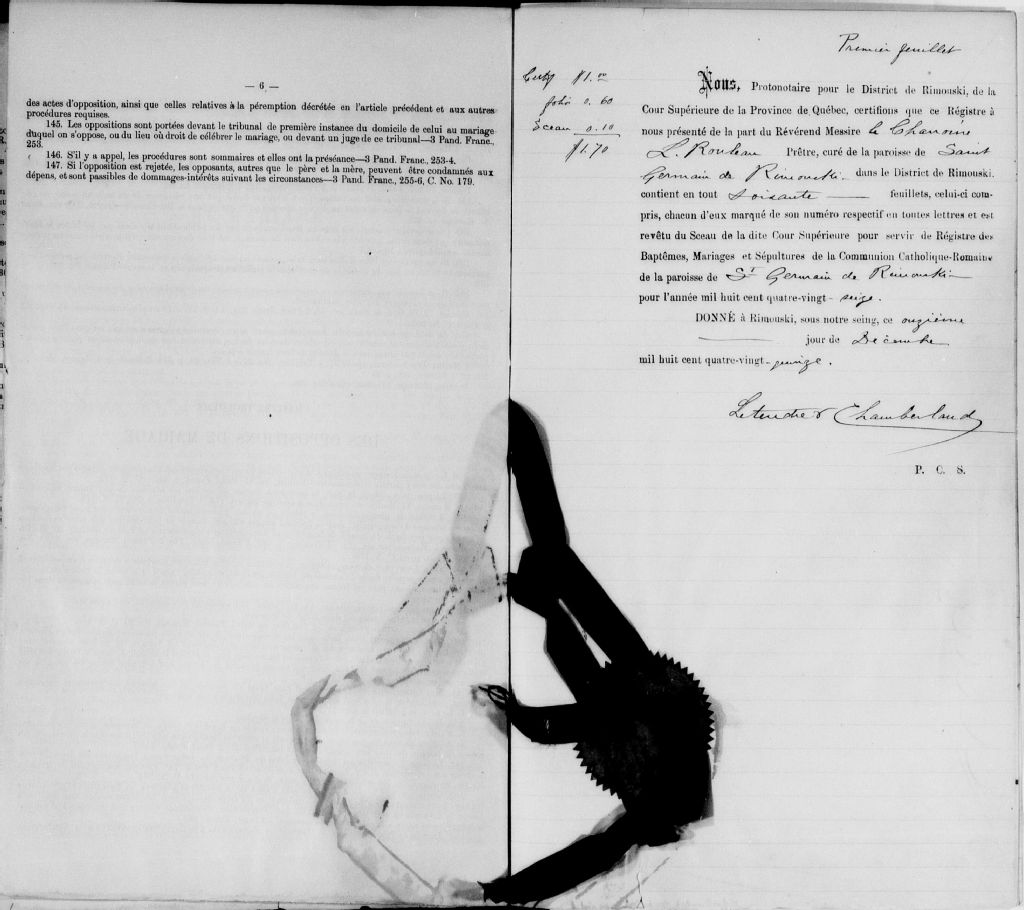 — 6 —
des actes d'opposition, ainsi que celles relatives à la péremption décrétée en l'article précédent et aux autres
procédures requises.
145. Les oppositions sont portées devant le tribunal de première instance du domicile de celui au mariage
duquel on s'oppose, ou du lieu où droit de célébrer le mariage, ou devant un juge de ce tribunal—3 Pand. Franc.,
253.
146. S'il y a appel, les procédures sont sommaires et elles ont la préséance—3 Pand. Franc., 253-4.
147. Si l'opposition est rejetée, les opposants, autres que le père et la mère, peuvent être condamnés aux
dépens, et sont passibles de dommages-intérêts suivant les circonstances—3 Pand. Franc., 255-6, C. No. 179.
Premier feuillet
$1.00
folio 0.60
Sceau 0.10
$1.70
Nous, Protonotaire pour le District de Rimouski, de la
Cour Supérieure de la Province de Québec, certifions que ce Régistre à
nous présenté de la part du Révérend Messire le Chanoine
L. Rouleau Prêtre, curé de la paroisse de Saint
Germain de Rimouski dans le District de Rimouski.
contient en tout Soixante — feuillets, celui-ci com-
pris, chacun d'eux marqué de son numéro respectif en toutes lettres et est
revêtu du Sceau de la dite Cour Supérieure pour servir de Régistre des
Baptêmes, Mariages et Sépultures de la Communion Catholique-Romaine
de la paroisse de St Germain de Rimouski —
pour l'année mil huit cent quatre-vingt- seize.
DONNÉ à Rimouski, sous notre seing, ce onzième
— jour de Décembre
mil huit cent quatre-vingt- quinze.
Letendre & Chamberland
P. C. S.